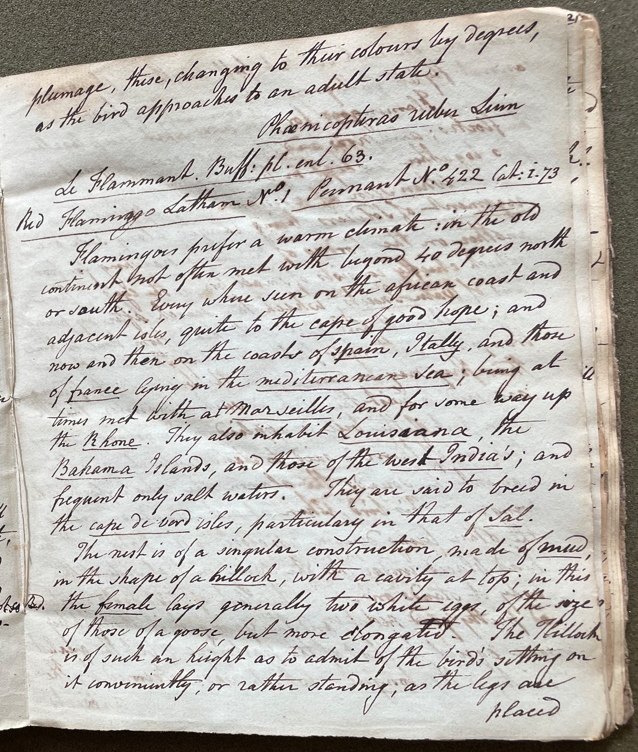 plumage, these, changing to their colours by degrees,
as the bird approaches to an adult state.
Phœnicopteras ruber Linn
Le Flammant. Buff: pl. enl. 63.
Red Flamingo Latham No. 1 Pennant No. 422 Cat: 1.73
Flamingoes prefer a warm climate: in the old
continent not often met with beyond 40 degrees north
or south. Every where seen on the african coast and
adjacent isles, quite to the cape of good hope; and
now and then on the coasts of spain, Itally, and those
of france lying in the mediterranean sea; being at
times met with at Marseilles, and for some way up
the Rhone. They also inhabit Louisiana, the
Bahama Islands, and those of the west India's; and
frequent only salt waters. They are said to breed in
the cape de verd isles, particulary in that of Sal.
The nest is of a singular construction, made of mud,
in the shape of a hillock, with a cavity at top; in this
the female lays generally two white eggs, of the size
of those of a goose, but more elongated. The Hillock
is of such an height as to admit of the bird's sitting on
it conviniently, or rather standing, as the legs are
placed